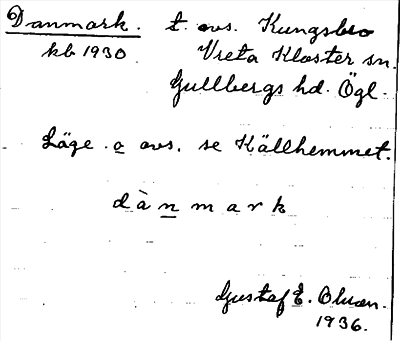 Danmark. t. avs. Kungsbro
kb 1930. Vreta Kloster sn.
Gullbergs hd. Ögl.
Läge o avs. se Källhemmet.
dànmark
Gustaf E. Olsson.
1936.